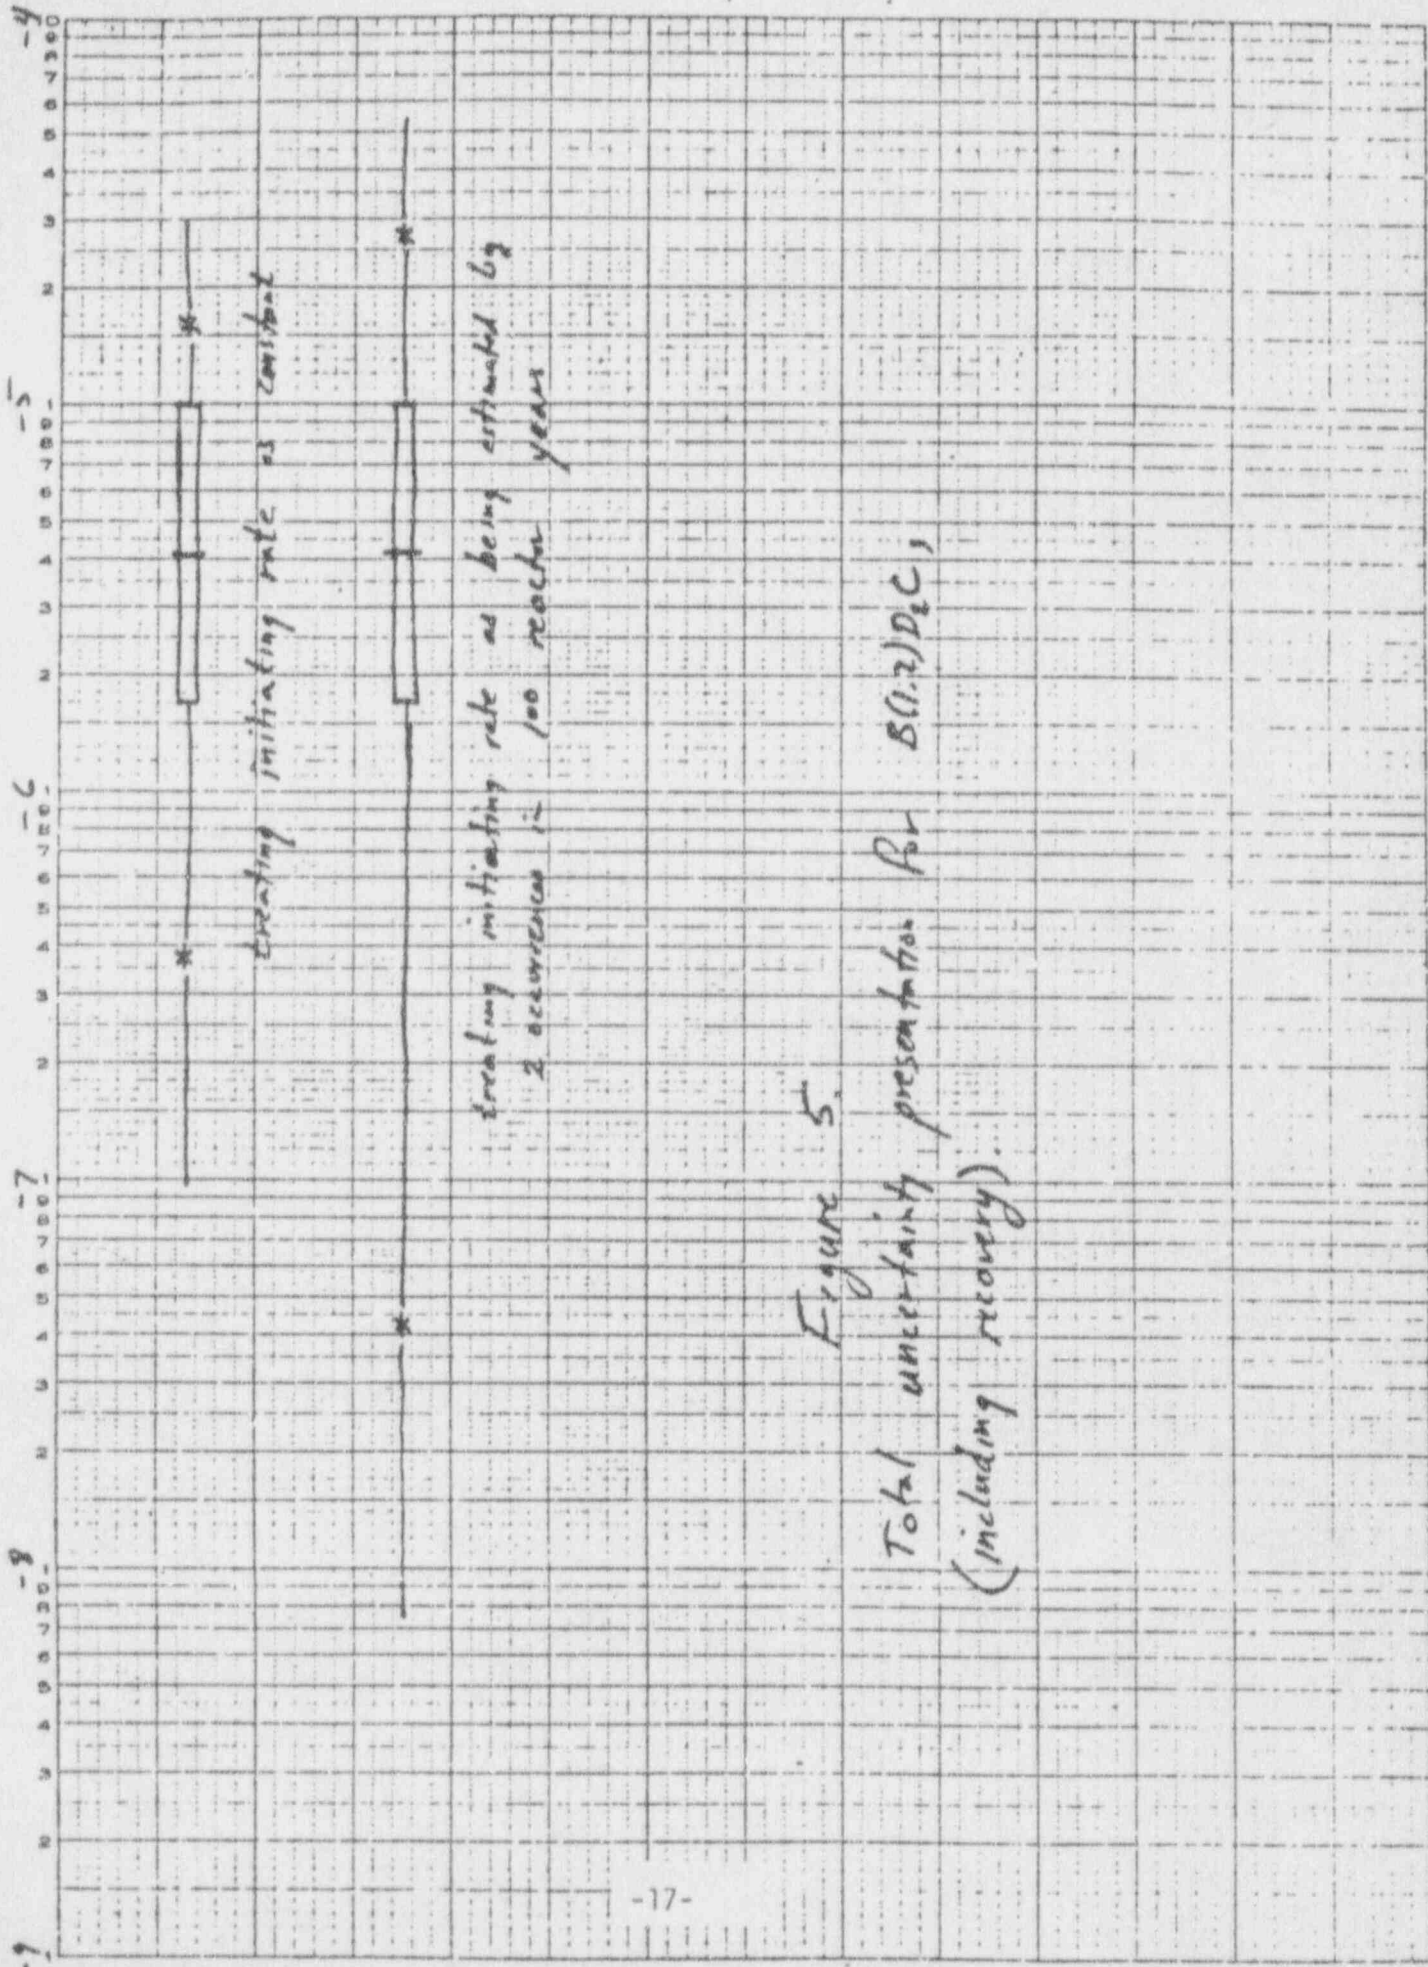 -4
-5
-6
-7
-8
-9
treating initiating rate as constant
treating initiating rate as being estimated by
2 occurrences in 100 reactor years
Figure 5.
Total uncertainty presentation for B(1.2)D₂C,
(including recovery).
-17-